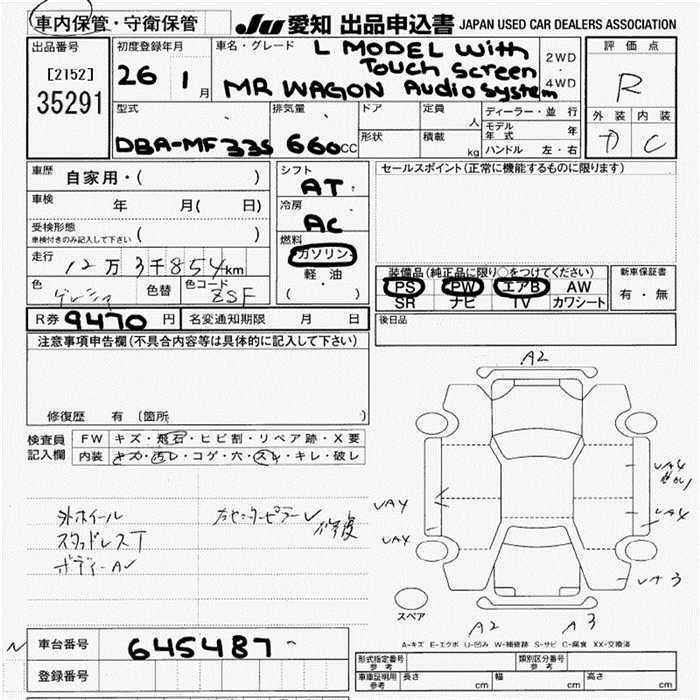 車内保管・守衛保管
JU 愛知 出品申込書 JAPAN USED CAR DEALERS ASSOCIATION
出品番号
[2152]
35291
初度登録年月
26 1月
車名・グレード
L MODEL with
Touch Screen
MR WAGON Audio System
2WD
4WD
評価点
R
外装 内装
C
型式
DBA-MF33S
排気量
660cc
ドア
形状
定員
人
積載
kg
ディーラー・並行
モデル年式 年
ハンドル 左・右
車歴 自家用・( )
車検 年 月( 日)
受検形態
車検付きのみ記入して下さい ( )
走行
12万3千854km
色 色替 色コード
ZSF
シフト
AT
冷房
AC
燃料
ガソリン
軽・油
( )
セールスポイント(正常に機能するものに限ります)
装備品(純正品に限り○をつけてください)
PS PW エアB AW
SR ナビ TV カワシート
新車保証書
有・無
R券 9470円 名変通知期限 月 日
後日品
注意事項申告欄(不具合内容等は具体的に記入して下さい)
修復歴 有 (箇所 )
検査員
記入欄
FW キズ・飛石・ヒビ割・リペア跡・X要
内装 キズ・汚レ・コゲ・穴・スレ・キレ・破レ
外ホイール
スタッドレスT
ボディーAU
右センターピラーU
修復
A2
UA4
UA4
UA4
UA4
UA3
A2
A3
スペア
A-キズ E-エクボ U-凹み W-補修跡 S-サビ C-腐食 XX-交換済
車台番号 645487
登録番号
形式指定番号
参考
類別区分番号
参考
車庫証明用
参考
長さ cm 幅 cm 高さ cm